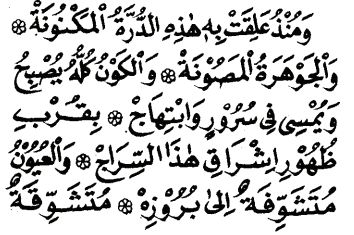 وَمُنْذُ عَلَقَتْ بِهِ هٰذِهِ الدُّرَّةُ الْمَكْنُونَةُ ۞
وَالْجَوْهَرَةُ الْمَصُونَةُ ۞ وَالْكَوْنُ كُلُّهُ يُصْبِحُ
وَيُمْسِىْ فِىْ سُرُوْرٍ وَابْتِهَاجٍ ۞ بِقُرْبِ
ظُهُوْرِ اِشْرَاقِ هٰذَا السِّرَاجِ ۞ وَالْعُيُوْنُ
مُتَشَوِّفَةٌ اِلىٰ بُرُوْزِهْ ۞ مُتَشَوِّقَةٌ